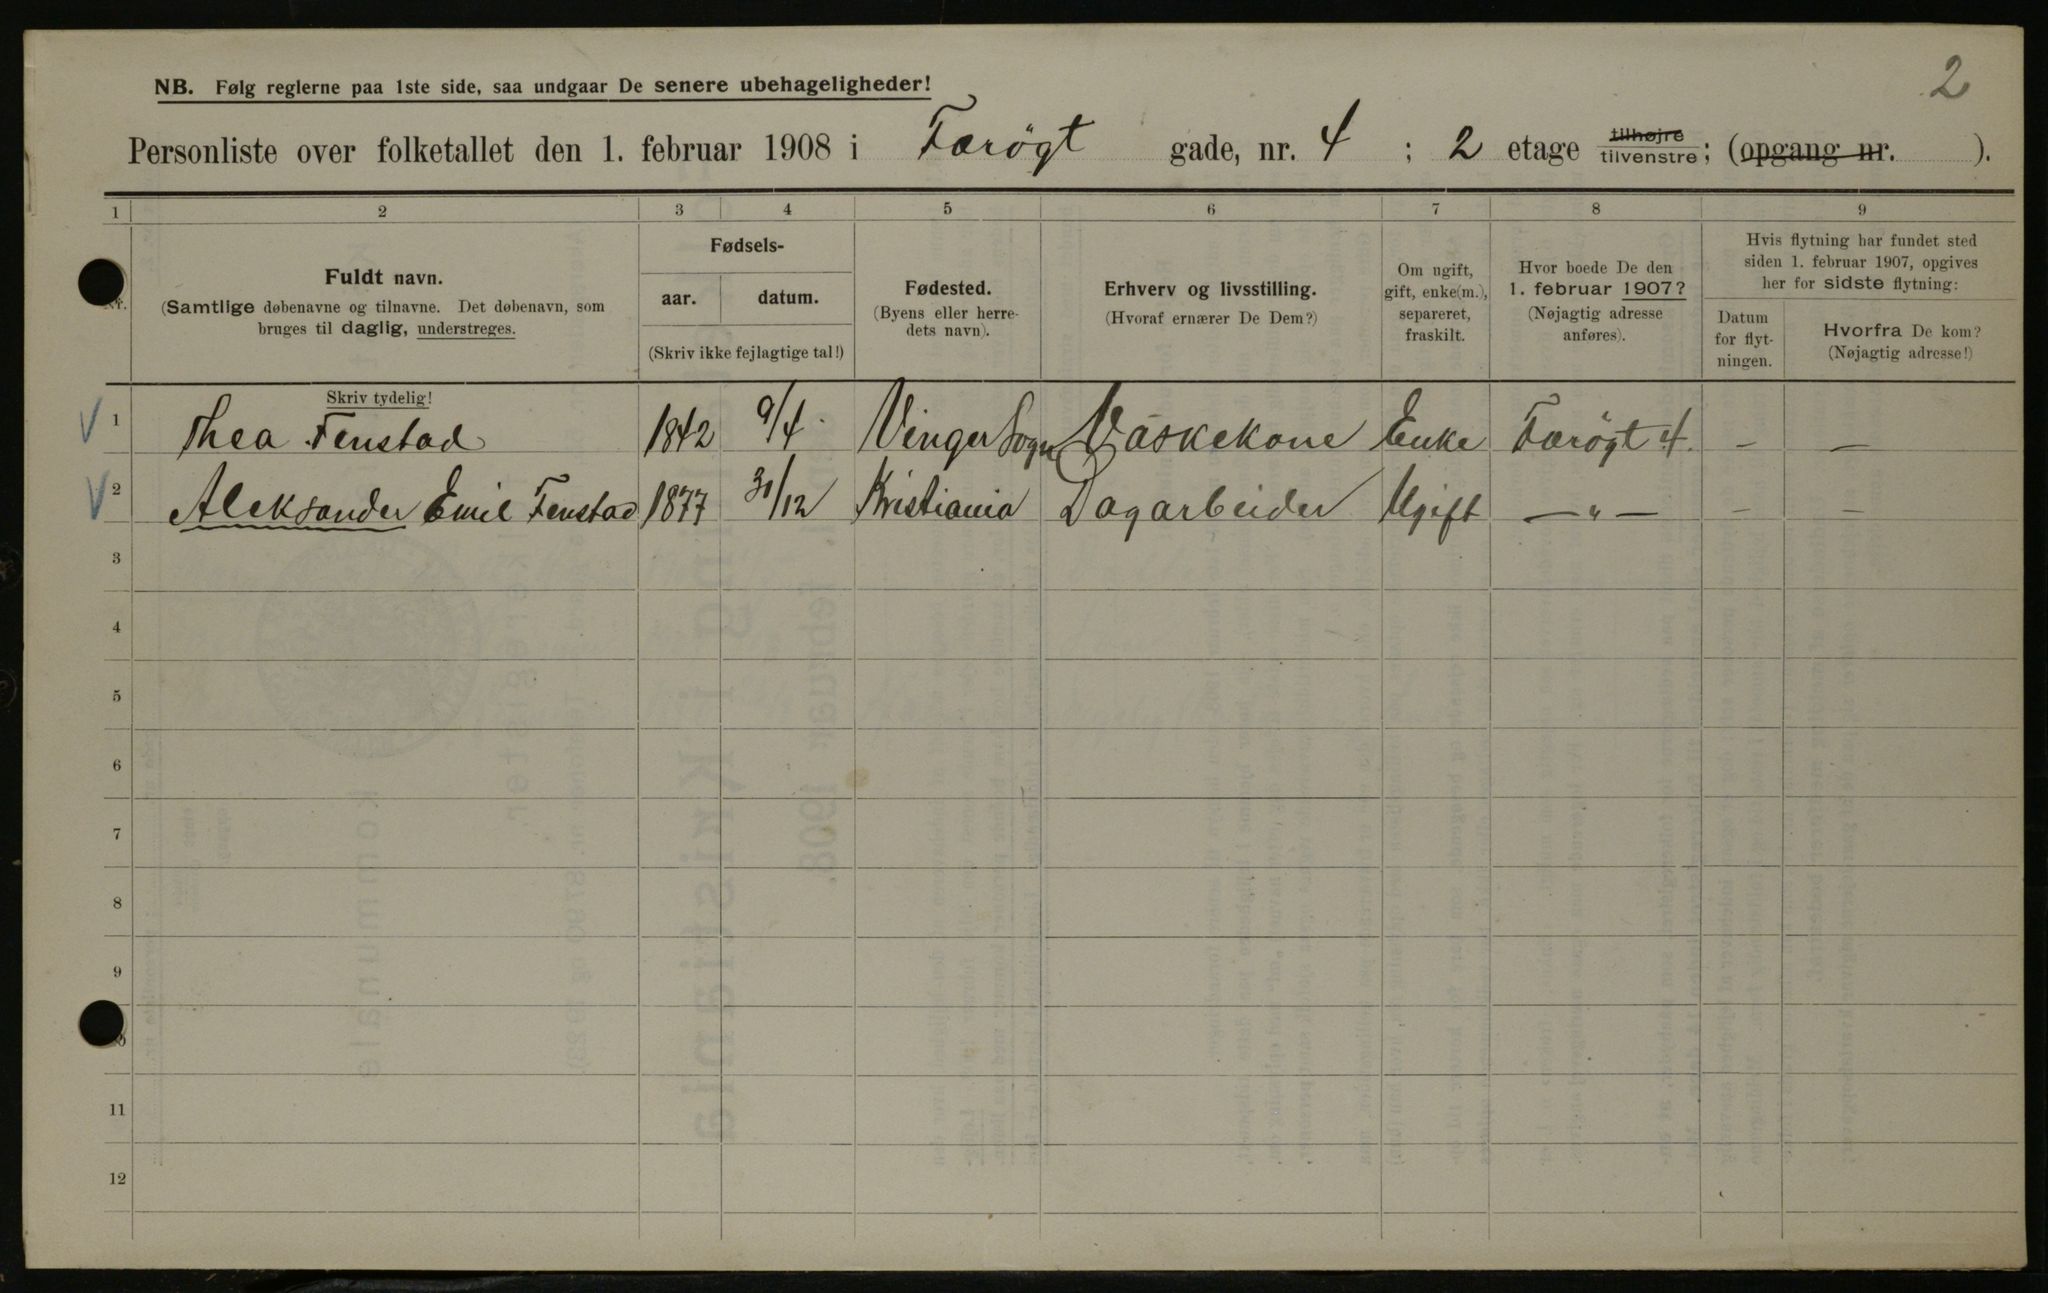 2
NB. Følg reglerne paa 1ste side, saa undgaar De senere ubehageligheder!
Personliste over folketallet den 1. februar 1908 i Færögt gade, nr. 4 ; 2 etage tilhøjre tilvenstre; (opgang nr. ).
1 2 3 4 5 6 7 8 9
Nr.
Fuldt navn.
(Samtlige døbenavne og tilnavne. Det døbenavn, som
bruges til daglig, understreges.
Fødsels-
aar. datum.
(Skriv ikke fejlagtige tal!)
Fødested.
(Byens eller herre-
dets navn).
Erhverv og livsstilling.
(Hvoraf ernærer De Dem?)
Om ugift,
gift, enke(m.),
separeret,
fraskilt.
Hvor boede De den
1. februar 1907?
(Nøjagtig adresse
anføres).
Hvis flytning har fundet sted
siden 1. februar 1907, opgives
her for sidste flytning:
Datum
for flyt-
ningen.
Hvorfra De kom?
(Nøjagtig adresse!)
Skriv tydelig!
1 Thea Fenstad 1842 9/4 Vinger Sogn Vaskekone Enke Færögt 4. – –
2 Aleksander Emil Fenstad 1877 31/12 Kristiania Dagarbeider Ugift — " — – –
3
4
5
6
7
8
9
11
12